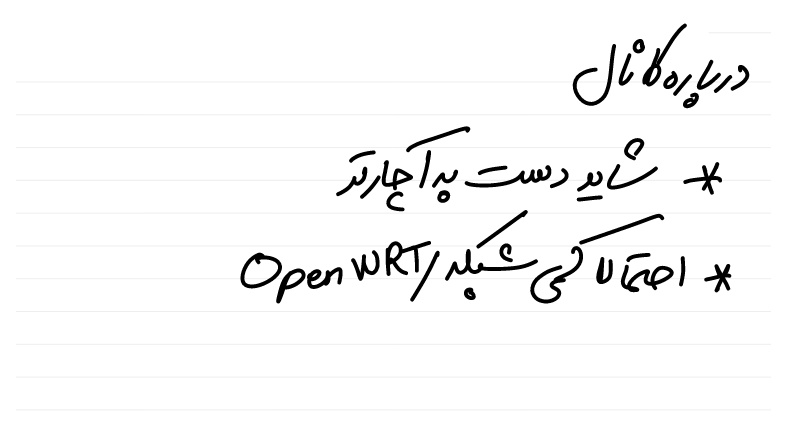 درباره کانال
* شاید دست به آچارتر
* احتمالا کمی شبکه/OpenWRT